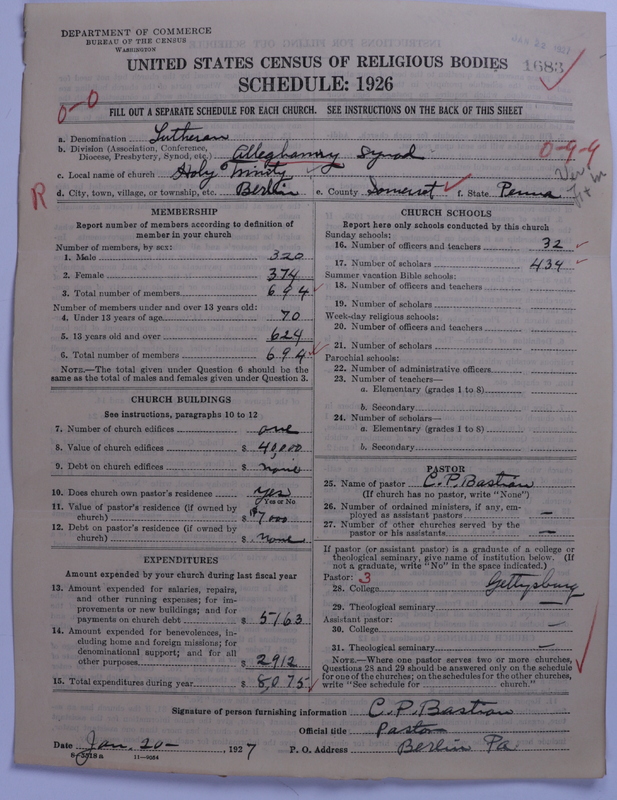 DEPARTMENT OF COMMERCE
BUREAU OF THE CENSUS
WASHINGTON
UNITED STATES CENSUS OF RELIGIOUS BODIES
1683
SCHEDULE: 1926
0-0
FILL OUT A SEPARATE SCHEDULE FOR EACH CHURCH. SEE INSTRUCTIONS ON THE BACK OF THIS SHEET
a. Denomination Lutheran
b. Division (Association, Conference, Diocese, Presbytery, Synod, etc.) Alleghany Synod
0-9-9
c. Local name of church Holy Trinity
d. City, town, village, or township, etc. Berlin e. County Somerset f. State Penna
R
MEMBERSHIP
Report number of members according to definition of
member in your church
Number of members, by sex:
1. Male 320
2. Female 374
3. Total number of members 694
Number of members under and over 13 years old:
4. Under 13 years of age 70
5. 13 years old and over 624
6. Total number of members 694
NOTE.—The total given under Question 6 should be the
same as the total of males and females given under Question 3.
CHURCH BUILDINGS
See instructions, paragraphs 10 to 12
7. Number of church edifices one
8. Value of church edifices $ 40,000
9. Debt on church edifices $ none
10. Does church own pastor's residence yes
Yes or No
11. Value of pastor's residence (if owned by
church) $ $7000
12. Debt on pastor's residence (if owned by
church) $ none
EXPENDITURES
Amount expended by your church during last fiscal year
13. Amount expended for salaries, repairs,
and other running expenses; for im-
provements or new buildings; and for
payments on church debt $ 5163
14. Amount expended for benevolences, in-
cluding home and foreign missions; for
denominational support; and for all
other purposes $ 2912
15. Total expenditures during year $ 8075
CHURCH SCHOOLS
Report here only schools conducted by this church
Sunday schools:
16. Number of officers and teachers 32
17. Number of scholars 434
Summer vacation Bible schools:
18. Number of officers and teachers
19. Number of scholars
Week-day religious schools:
20. Number of officers and teachers
21. Number of scholars
Parochial schools:
22. Number of administrative officers
23. Number of teachers—
a. Elementary (grades 1 to 8)
b. Secondary
24. Number of scholars—
a. Elementary (grades 1 to 8)
b. Secondary
PASTOR
25. Name of pastor C. P. Bastian
(If church has no pastor, write "None")
26. Number of ordained ministers, if any, em-
ployed as assistant pastors —
27. Number of other churches served by the
pastor or his assistants —
If pastor (or assistant pastor) is a graduate of a college or
theological seminary, give name of institution below. (If
not a graduate, write "No" in the space indicated.)
Pastor: 3
28. College Gettysburg
29. Theological seminary —
Assistant pastor:
30. College —
31. Theological seminary —
NOTE.—Where one pastor serves two or more churches,
Questions 28 and 29 should be answered only on the schedule
for one of the churches; on the schedules for the other churches,
write "See schedule for church."
Signature of person furnishing information C. P. Bastian
Official title Pastor
Date Jan. 20—, 1927 P. O. Address Berlin Pa
8-5518a 11-9084